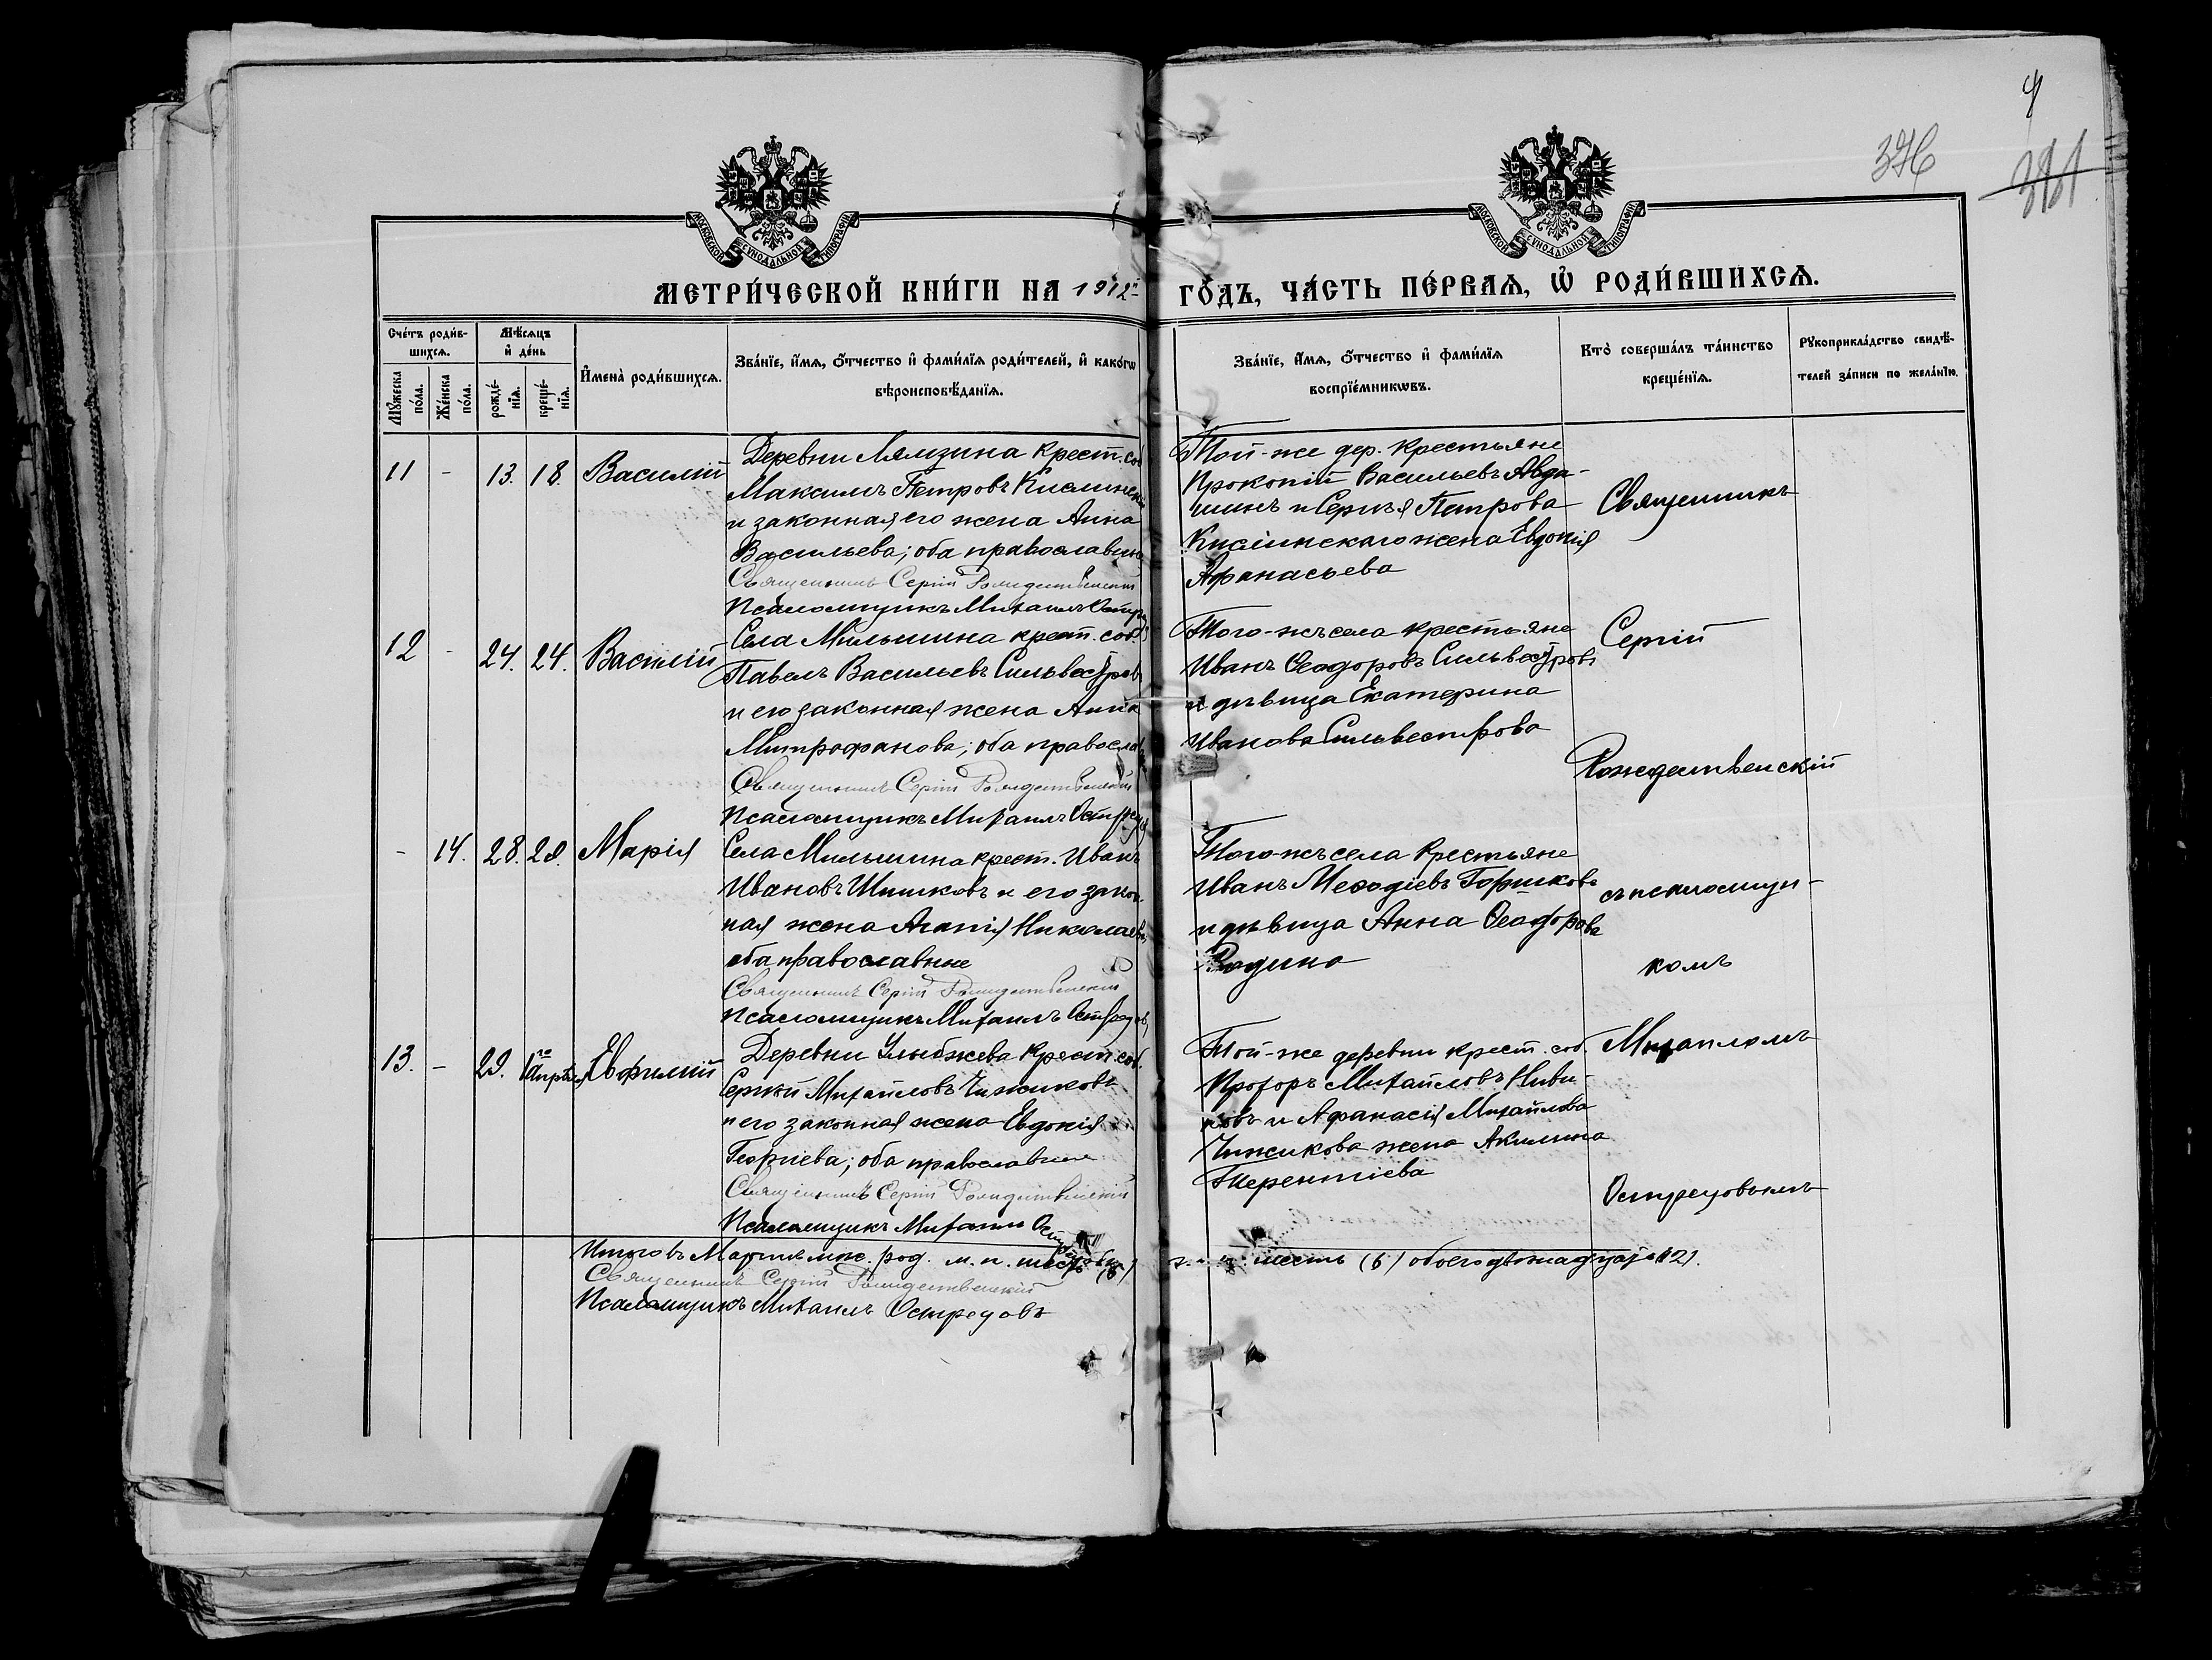 4
376
381
МОСКОВСКОЙ СѴНОДАЛЬНОЙ ТИПОГРАФІИ
МОСКОВСКОЙ СѴНОДАЛЬНОЙ ТИПОГРАФІИ
МЕТРИ́ЧЕСКОЙ КНИ́ГИ НА 1912 ГО́ДЪ, ЧА́СТЬ ПЕ́РВАѦ, Ѽ РОДИ́ВШИХСѦ.
Сче́тъ роди́в-
шихсѧ.
Мꙋ́жеска по́ла.
Же́нска по́ла.
Мѣ́сѧцъ
и҆ де́нь
рожде́-
нїѧ.
креще́-
нїѧ.
И҆мена̀ роди́вшихсѧ.
Зва́нїе, и҆́мѧ, ѻ҆́тчество и҆ фами́лїѧ роди́телей, и҆ како́гѡ
вѣроисповѣ́данїѧ.
Зва́нїе, и҆́мѧ, ѻ҆́тчество и҆ фами́лїѧ
воспрїе́мникѡвъ.
Кто̀ соверша́лъ та́инство
креще́нїѧ.
Рꙋкоприкла́дство свидѣ́-
телей за́писи по жела́нїю.
11 - 13. 18. Василій
Деревни Лямзина крест. соб
Максимъ Петровъ Кислинскій
и законная его жена Анна
Васильева; оба православные
Священникъ Сергій Рождественскій
Псаломщикъ Михаилъ Остре
Той-же дер. крестьяне
Прокопій Васильевъ Авдо-
шинъ и Сергѣя Петрова
Кислинскаго жена Евдокія
Афанасьева
12 - 24. 24. Василій
Села Мильшина крест. соб.
Павелъ Васильевъ Сильвестровъ
и его законная жена Анна
Митрофанова; оба православ
Священникъ Сергій Рождественскій
Псаломщикъ Михаилъ Острецов
Того-жъ села крестьяне
Иванъ Ѳеодоровъ Сильвестровъ
и дѣвица Екатерина
Иванова Сильвестрова
- 14. 28. 29. Марія
Села Мильшина крест. Иванъ
Ивановъ Шишковъ и его закон-
ная жена Агапія Николаева,
оба православные
Священникъ Сергій Рождественскій
Псаломщикъ Михаилъ Острецовъ
Того-жъ села крестьяне
Иванъ Меѳодіевъ Горшковъ
и дѣвица Анна Ѳеодорова
Родина
13. - 29. 1го Апрѣля Евфимій
Деревни крест. соб.
Сергѣй Михайловъ Чижиковъ
и его законная жена Евдокія
Георгіева; оба православные
Священникъ Сергій Рождественскій
Псаломщикъ Михаилъ Острецовъ
Той-же деревни крест. соб.
Прохоръ Михайловъ Ниви-
ковъ и Афанасія Михайлова
Чижикова жена Акилина
Терентіева
Священникъ
Сергій
Рождественскій
съ псаломщи-
комъ
Михаиломъ
Острецовымъ
Итого въ Мартѣ мѣс. род. м. п. шесть (6) ж. п. шесть (6) обоего двѣнадцать (12).
Священникъ Сергій Рождественскій
Псаломщикъ Михаилъ Острецовъ